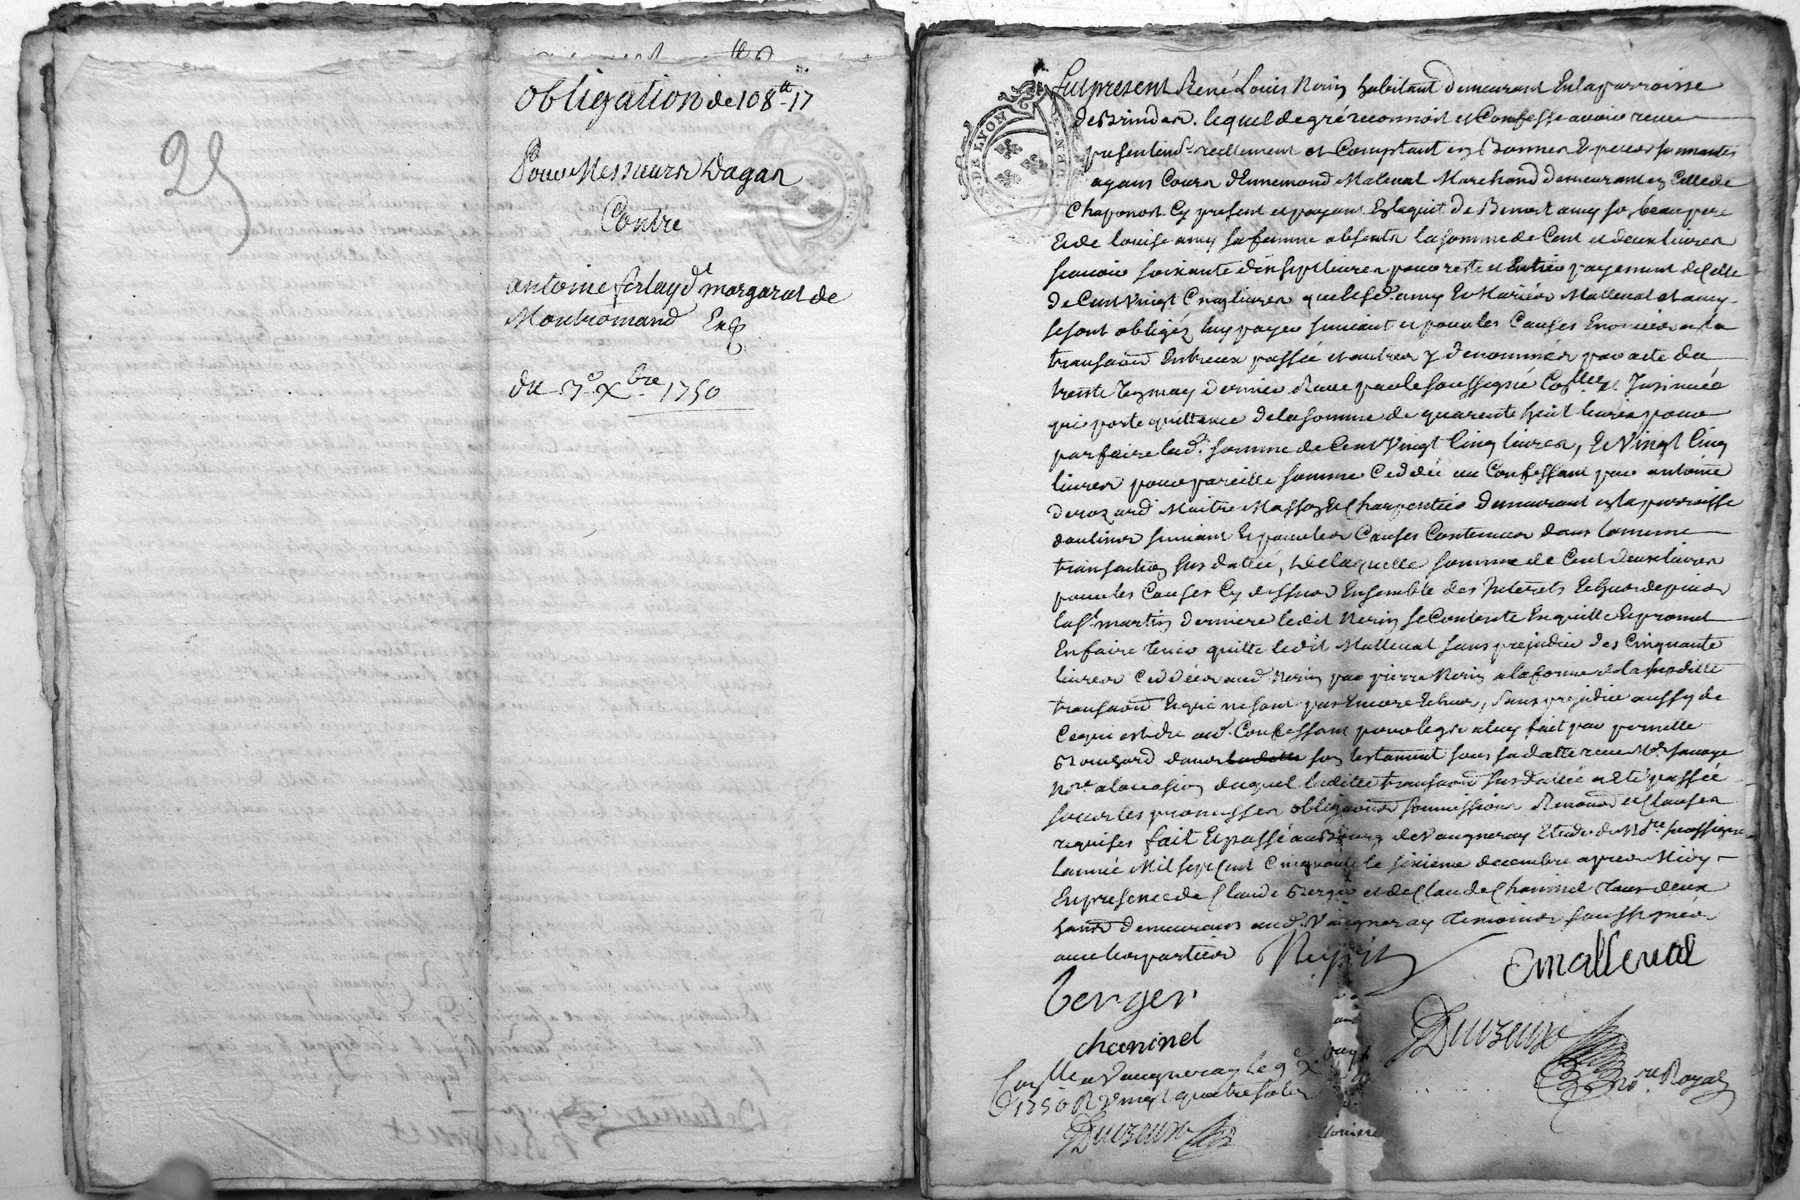 25
obligation de 108ᵗᵗ 17
Pour Messieurs Dagan
Contre
antoine ferlay dᵗ margarat de
Montromand
du 7ᵉ Xbre 1750
Fut present René Louis Nerin habitant demeurant En la parroisse
de Brindas. lequel de gré reconnoit et Confesse avoir receu
presentem.ᵗ reellement et Comptant en Bonnes Especes sonnantes
ayans Cours d'Ennemond Malleval Marchand demeurant en Celle de
Chaponost Cy present et payant En l'aquit de Benoit amy son beaupere
Et de louise amy sa femme absents la somme de Cent et deux livres
scavoir soixante dix sept livres pour reste et Entier payement de Celle
de Cent Vingt Cinq livres que lesd. amy Et Mariés Malleval et amy
se sont obligés luy payer suivant et pour les Causes Enoncées a la
transaōn Entreux passée et autres y denommés par acte du
trente Un may dernier Receu par le soussigné Coll.ée et Insinuée
qui porte quittance de la somme de quarente huit livres pour
parfaire lad. somme de Cent Vingt Cinq livres, Et Vingt Cinq
livres pour pareille somme Ceddée au Confessant par antoine
derozard Maitre Masson Et Charpentier demeurant en la parroisse
doulins suivant Et pour les Causes Contenues dans la meme
transaction sus datée, De laquelle somme de Cent deux livres
pour les Causes Cy dessus Ensemble des Interets Echus depuis
la Sᵗ martin derniere ledit Nerin se Contente En quitte Et promet
En faire tenir quitte ledit Malleval sans prejudice des Cinquante
livres Ceddées aud. Nerin par pierre Nerin a la forme de la susditte
transaōn Et qui ne sont pas Encore Echus, sans prejudice aussy de
Ce qui est du aud. Confessant pour legs a luy fait par pernette
Brouchard dans son testament sous sa datte receu Mᵉ sauvage
No.re a l'occasion duquel laditte transaōn sus dattée a Eté passée
sous les promesses obligaōns soumissions Renonōns et Clauses
requises fait Et passé au Bourg de Vaugneray Etude du No.re soussigné
l'année Mil sept Cent Cinquante le sixieme decembre apres Midy
En presence de Claude Berger et de Claude Chaninel tous deux
demeurans aud. Vaugneray temoins soussignés
avec les parties Nerin
Emalleval
berger
chaninel
Duvzeux
No.re Royal
Con.lle a Vaugneray le 9.e X.bre
1750 R. Vingt quatre sols
Duvzeux